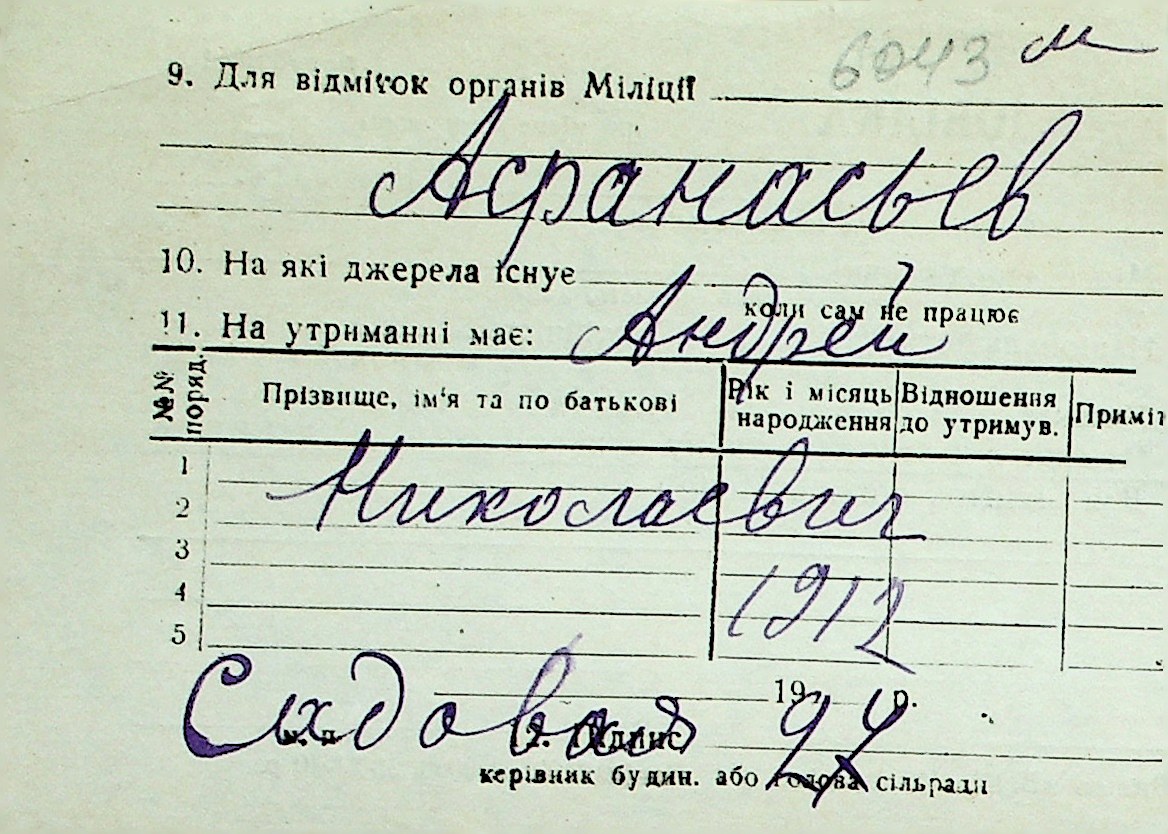 6043 м
9. Для відміток органів Міліції
Афанасьев
10. На які джерела існує
коли сам не працює
11. На утриманні має:
Андрей
№№ поряд.
Прізвище, ім'я та по батькові
Рік і місяць народження
Відношення до утримув.
Приміт
1
Николаевич
2
3
4
1912
5
19 р.
Садовая 27
м. п.
Підпис
керівник будин. або голова сільради